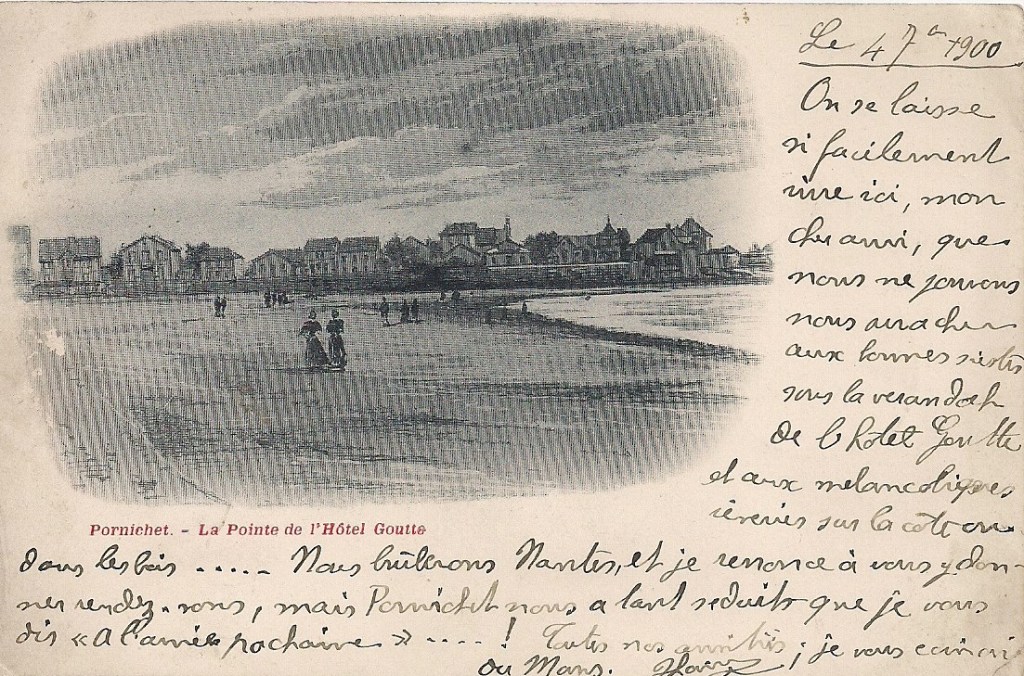 Le 4 7bre 1900
On se laisse
si facilement
vivre ici, mon
cher ami, que
nous ne pouvons
nous arracher
aux bonnes siestes
sous la verandah
de l'hotel Goutte
et aux mélancoliques
rêveries sur la côte ou
Pornichet. - La Pointe de l'Hôtel Goutte
dans les bois ..... Nous brûlerons Nantes, et je renonce à vous y don-
ner rendez-vous, mais Pornichet nous a tant séduits que je vous
dis « A l'année pochaine » ....! Toutes nos amitiés ; je vous écrirai
du Mans.